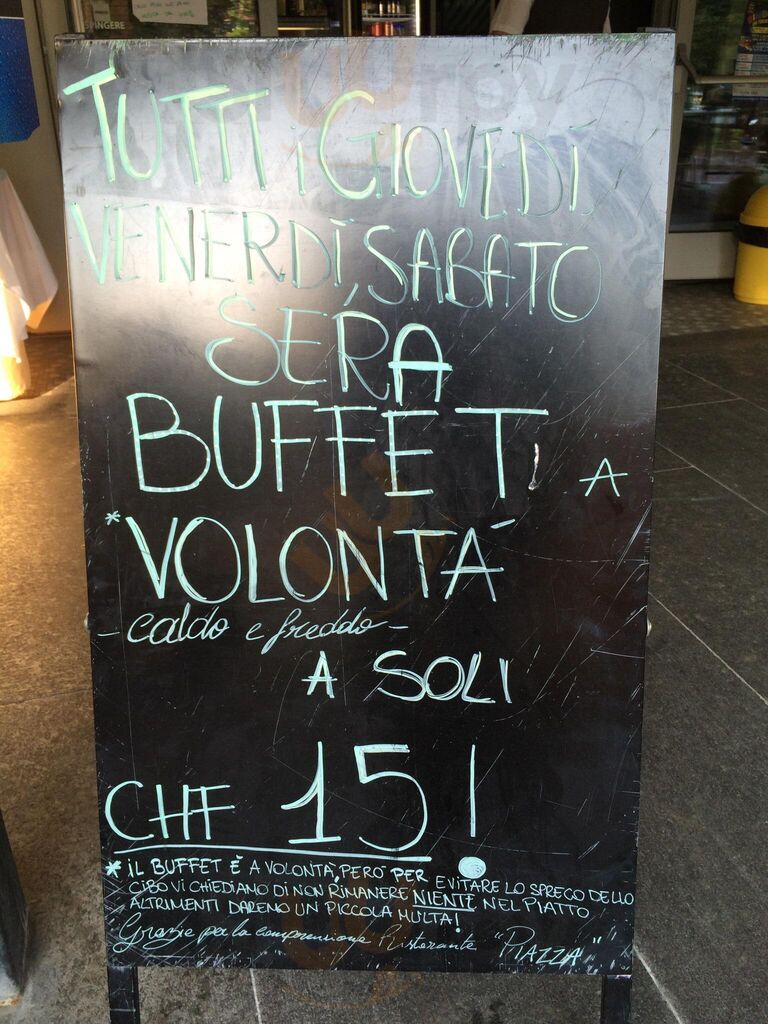 SPINGERE
TUTTI i GIOVEDÌ
VENERDÌ, SABATO
SERA
BUFFET A
*VOLONTÀ
- caldo e freddo -
A SOLI
CHF 15!
* IL BUFFET È A VOLONTÀ, PERÒ PER EVITARE LO SPRECO DELLO
CIBO VI CHIEDIAMO DI NON RIMANERE NIENTE NEL PIATTO
ALTRIMENTI DAREMO UN PICCOLA MULTA!
Grazie per la comprensione Ristorante "PIAZZA"